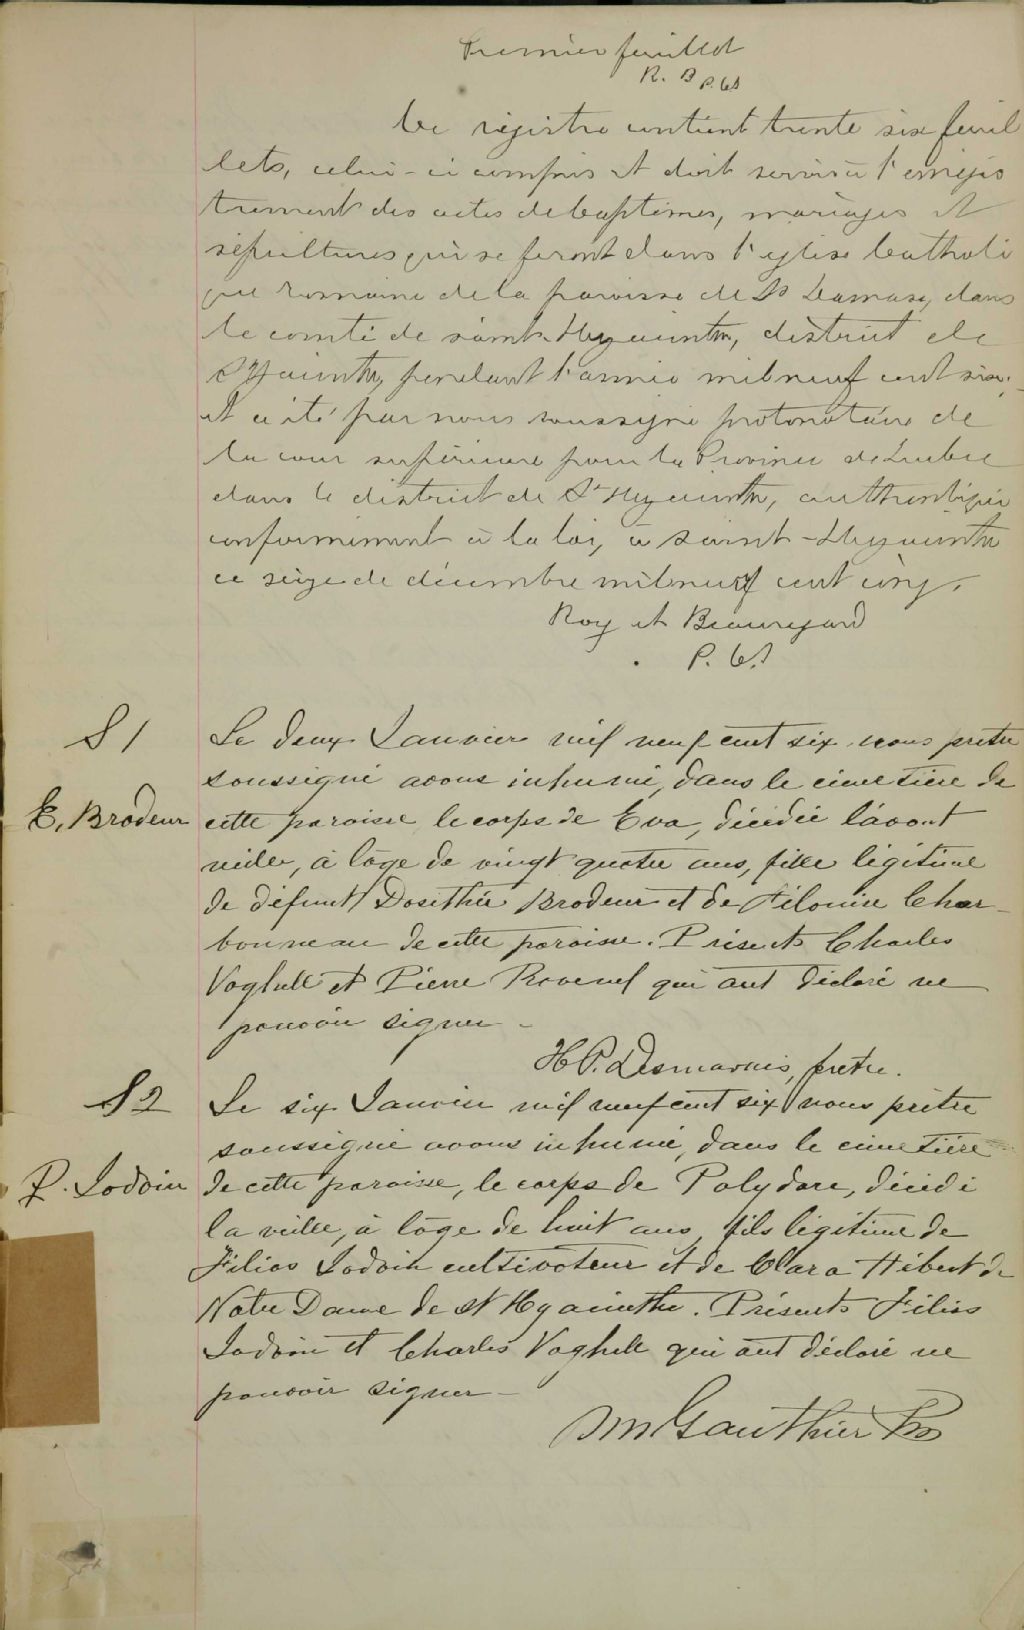 Premier feuillet
R. B P. C. S
Ce registre contient trente six feuil
lets, celui-ci compris et doit servir à l'enregis
trement des actes de baptêmes, mariages et
sépultures qui se feront dans l'église Catholi
que romaine de la paroisse de St Damase, dans
le comté de saint-Hyacinthe, district de
St Hyacinthe, pendant l'année mil neuf cent six;
et a été par nous soussigné protonotaire de
la cour supérieure pour la Province de Québec
dans le district de St Hyacinthe, authentiqué
conformément à la loi, à saint-Hyacinthe
ce seize de décembre mil neuf cent cinq.
Roy et Beauregard
P. C. S
S 1
E. Brodeur
Le deux Janvier mil neuf cent six nous prêtre
soussigné avons inhumé, dans le cimetière de
cette paroisse le corps de Eva, décédée l'avant
veille, à l'âge de vingt quatre ans, fille légitime
de défunt Dosithée Brodeur et de Filonise Char-
bonneau de cette paroisse. Présents Charles
Voghell et Pierre Ravenel qui ont déclaré ne
pouvoir signer -
H. P. Desmarais, ptre.
S 2
P. Jodoin
Le six Janvier mil neuf cent six nous prêtre
soussigné avons inhumé, dans le cimetière
de cette paroisse, le corps de Polydore, décédé
la veille, à l'âge de huit ans, fils légitime de
Filias Jodoin cultivateur et de Clara Hébert de
Notre Dame de St Hyacinthe. Présents Filias
Jodoin et Charles Voghell qui ont déclaré ne
pouvoir signer -
Gauthier Ptre